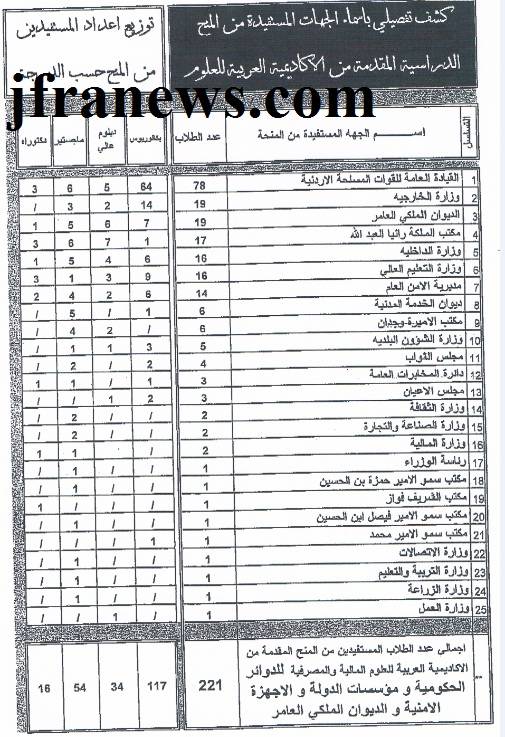 كشف تفصيلي بأسماء الجهات المستفيدة من المنح
الدراسية المقدمة من الأكاديمية العربية للعلوم
توزيع اعداد المستفيدين
من المنح حسب الدرجة
jfranews.com
التسلسل | اســـم الجهه المستفيدة من المنحة | عدد الطلاب | بكالوريوس | دبلوم عالي | ماجستير | دكتوراه
1 | القيادة العامة للقوات المسلحة الاردنية | 78 | 64 | 5 | 6 | 3
2 | وزارة الخارجيه | 19 | 14 | 2 | 3 | /
3 | الديوان الملكي العامر | 19 | 7 | 6 | 5 | 1
4 | مكتب الملكة رانيا العبد الله | 17 | 1 | 7 | 6 | 3
5 | وزارة الداخليه | 16 | 6 | 4 | 5 | 1
6 | وزارة التعليم العالي | 16 | 9 | 3 | 1 | 3
7 | مديرية الامن العام | 14 | 6 | 2 | 4 | 2
8 | ديوان الخدمة المدنية | 6 | 1 | / | 5 | /
9 | مكتب الاميرة وجدان | 6 | / | 2 | 4 | /
10 | وزارة الشؤون البلديه | 5 | 1 | 3 | 1 | /
11 | مجلس النواب | 4 | 2 | / | 2 | /
12 | دائرة المخابرات العامة | 3 | 1 | / | 1 | 1
13 | مجلس الاعيان | 3 | 2 | 1 | / | /
14 | وزارة الثقافة | 2 | / | / | 2 | /
15 | وزارة الصناعة والتجارة | 2 | / | / | 2 | /
16 | وزارة المالية | 2 | / | / | 1 | 1
17 | رئاسة الوزراء | 1 | / | / | 1 | /
18 | مكتب سمو الامير حمزة بن الحسين | 1 | / | / | 1 | /
19 | مكتب الشريف فواز | 1 | / | / | / | 1
20 | مكتب سمو الامير فيصل ابن الحسين | 1 | / | / | 1 | /
21 | مكتب سمو الامير محمد | 1 | 1 | / | / | /
22 | وزارة الاتصالات | 1 | / | / | 1 | /
23 | وزارة التربية والتعليم | 1 | / | / | 1 | /
24 | وزارة الزراعة | 1 | / | / | 1 | /
25 | وزارة العمل | 1 | / | 1 | / | /
** | اجمالي عدد الطلاب المستفيدين من المنح المقدمة من
الاكاديمية العربية للعلوم المالية والمصرفية للدوائر
الحكومية و مؤسسات الدولة و الاجهزة
الامنية و الديوان الملكي العامر | 221 | 117 | 34 | 54 | 16